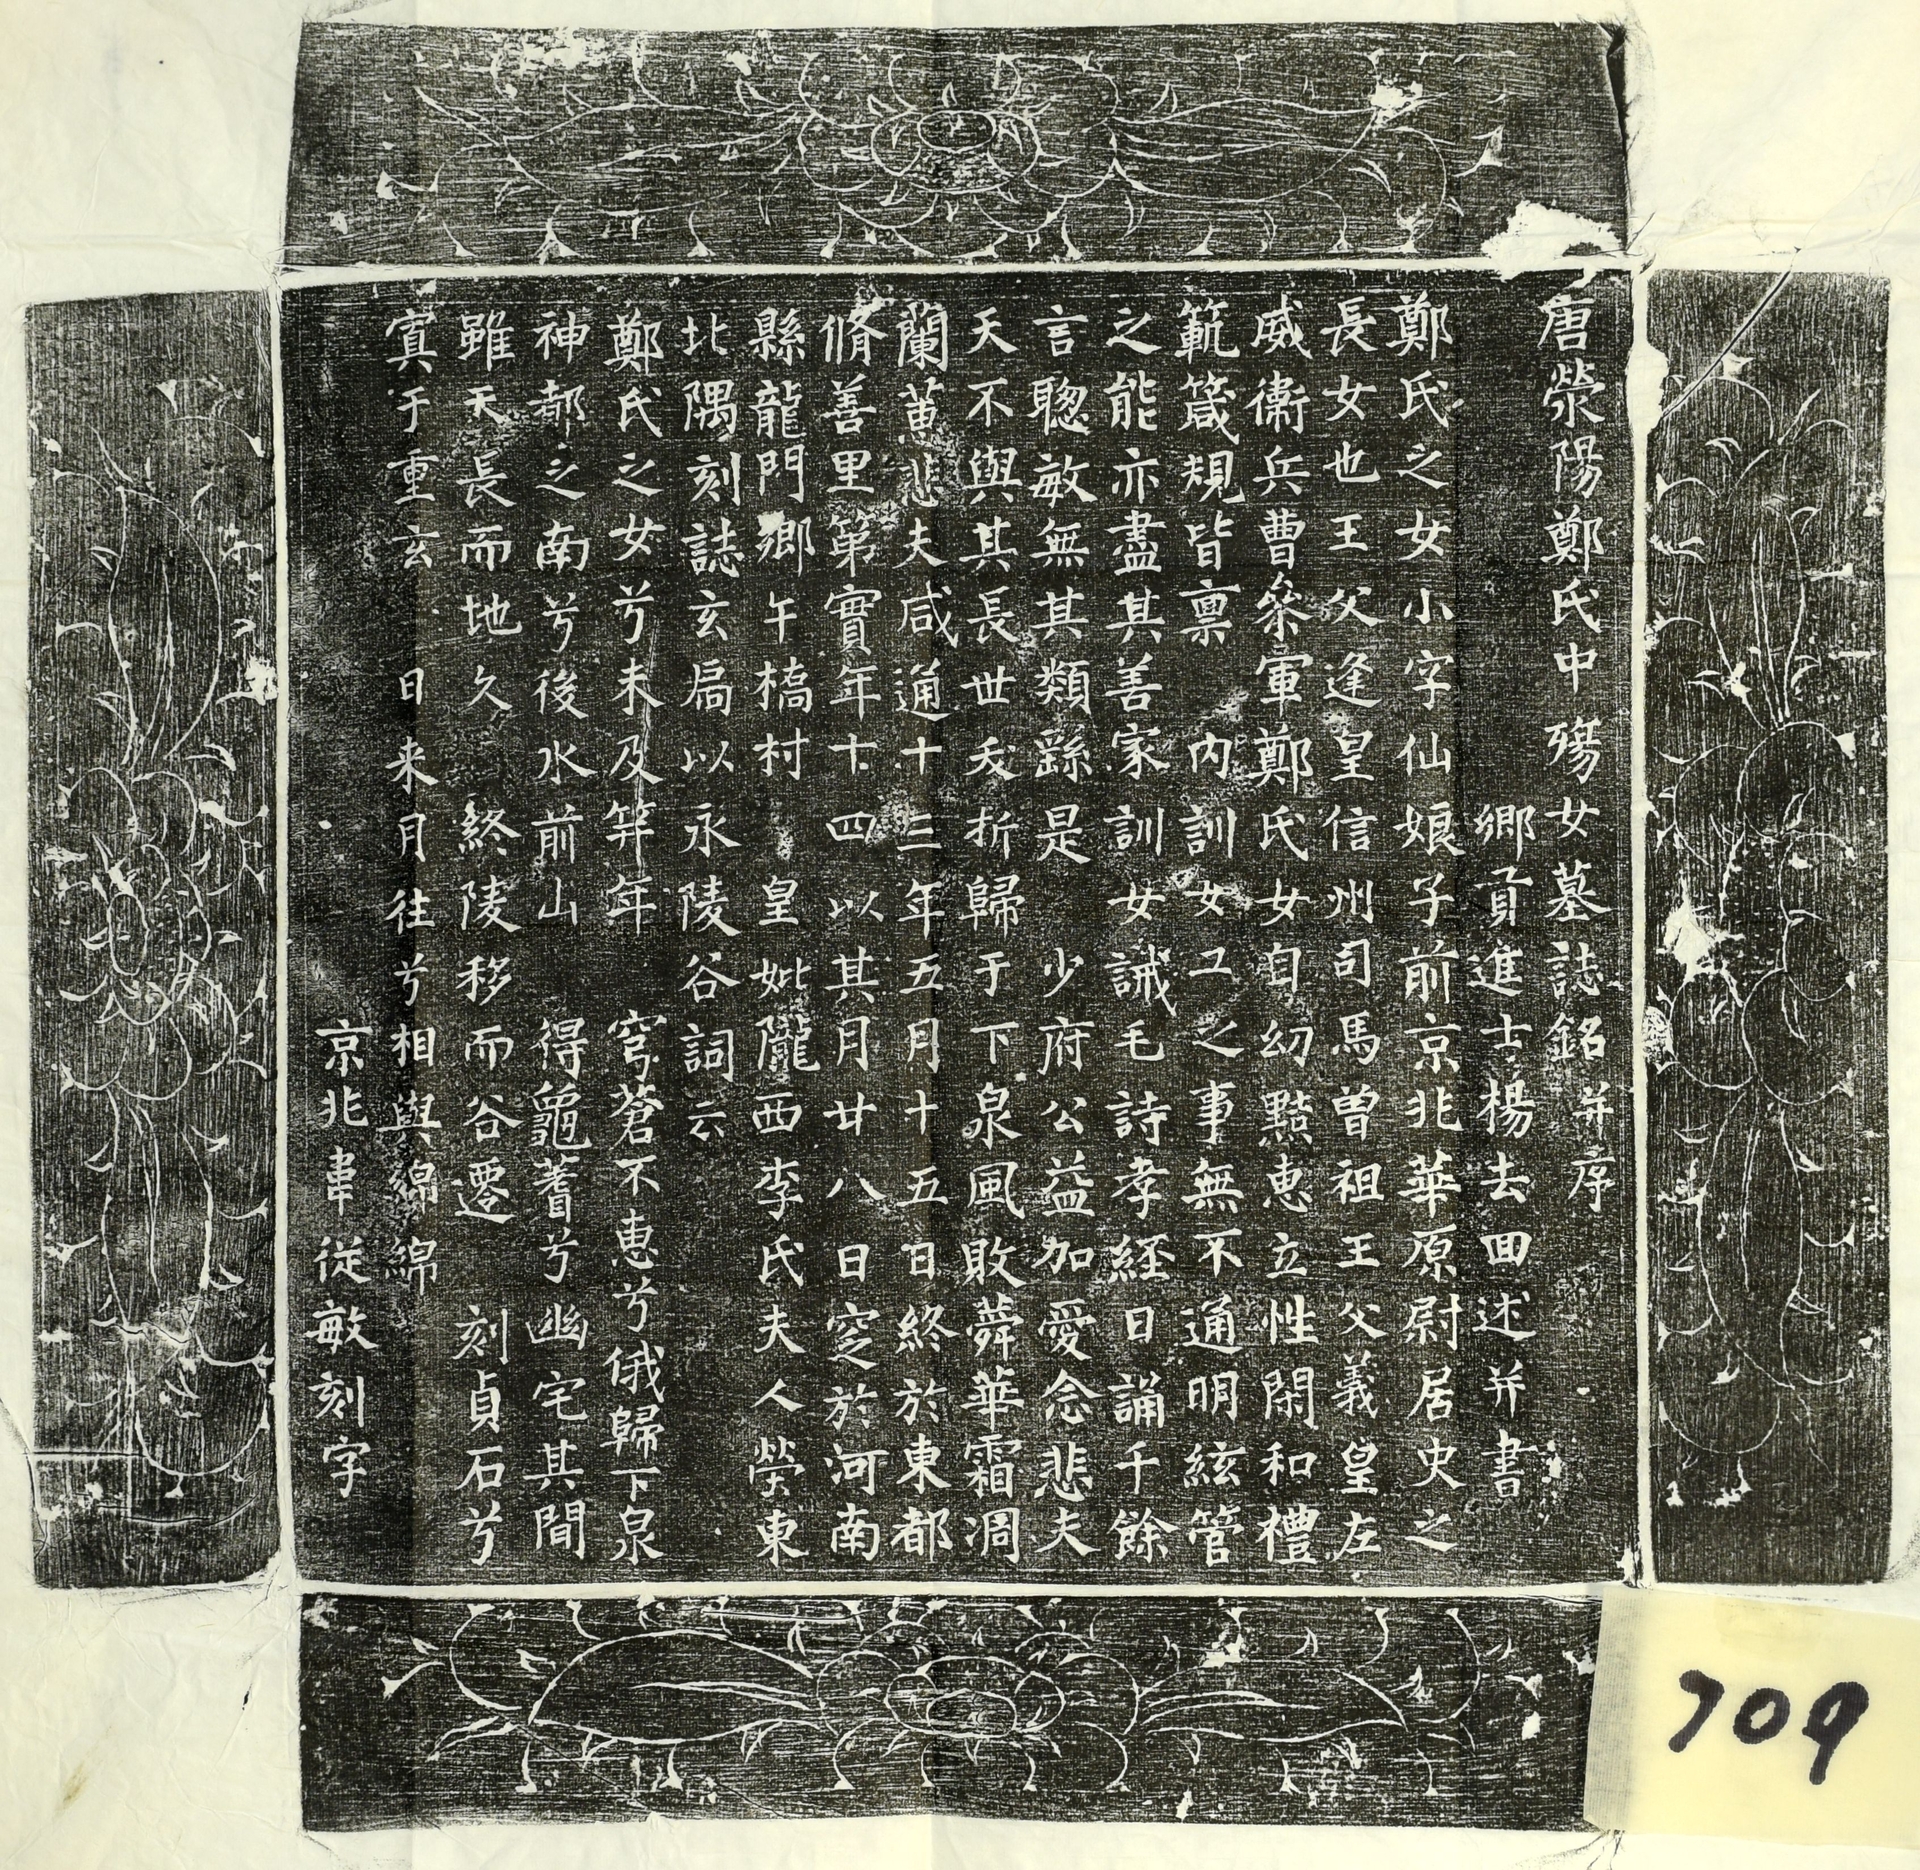 唐滎陽鄭氏中殤女墓誌銘并序
鄉貢進士楊去回述并書
鄭氏之女小字仙娘子前京兆華原尉居史之
長女也王父逢皇信州司馬曾祖王父義皇左
威衛兵曹叅軍鄭氏女自幼黠惠立性閑和禮
範箴規皆禀內訓女工之事無不通明絃管
之能亦盡其善家訓女誡毛詩孝經日誦千餘
言聦敏無其類繇是少府公益加愛念悲夫
天不與其長世夭折歸于下泉風敗蕣華霜凋
蘭茁悲夫咸通十三年五月十五日終於東都
脩善里第實年十四以其月廿八日窆於河南
縣龍門鄉午橋村皇妣隴西李氏夫人塋東
北隅刻誌玄扃以永陵谷詞云
鄭氏之女兮未及笄年穹蒼不惠兮俄歸下泉
神都之南兮後水前山得龜蓍兮幽宅其間
雖天長而地久終陵移而谷遷刻貞石兮
寘于重玄日来月往兮相與綿綿
京兆韋從敏刻字
709